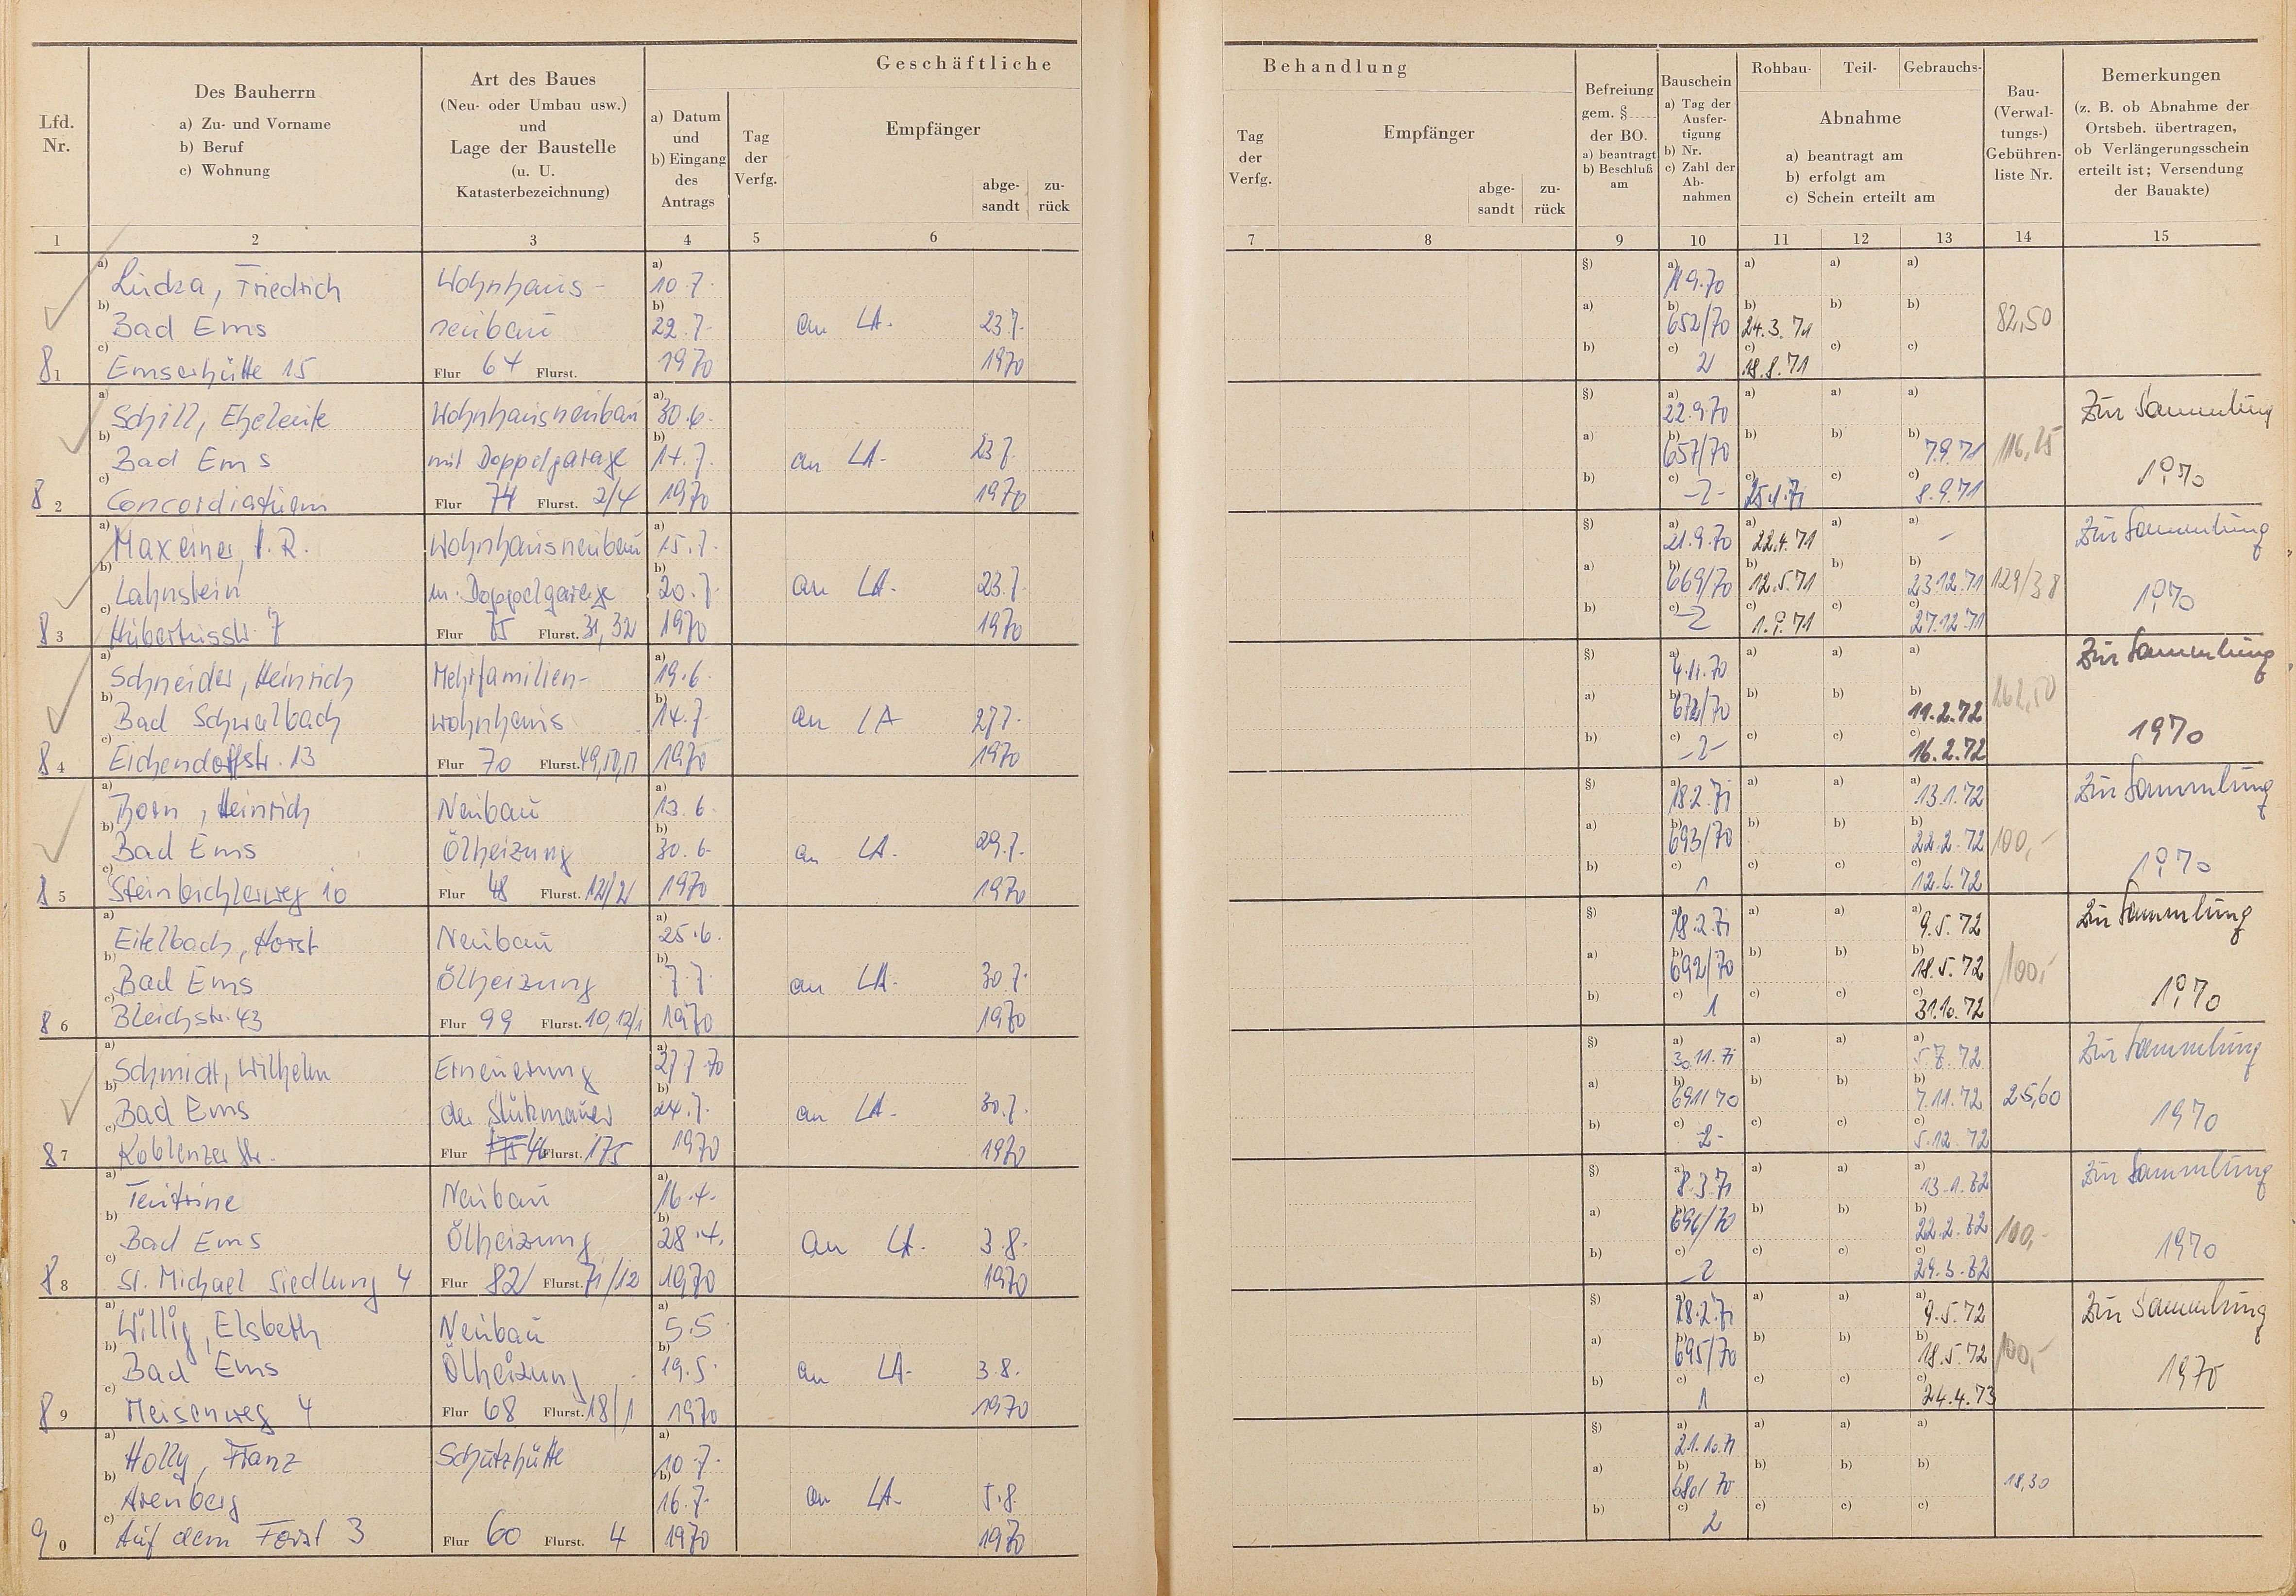 Geschäftliche
Lfd. Nr.
Des Bauherrn
a) Zu- und Vorname
b) Beruf
c) Wohnung
Art des Baues
(Neu- oder Umbau usw.)
und
Lage der Baustelle
(u. U.
Katasterbezeichnung)
a) Datum
und
b) Eingang
des
Antrags
Tag
der
Verfg.
Empfänger
abge-
sandt
zu-
rück
1 2 3 4 5 6
a) Friedrich Wohnhaus- a) 10.7.
b) Bad Ems neubau b) 22.7. an LA. 23.7.
81 c) Emserhütte 15 Flur 64 Flurst. 1970 1970
a) Schill, Eheleute Wohnhausneubau a) 30.6.
b) Bad Ems mit Doppelgarage b) 14.7. an LA. 23.7.
82 c) Concordiaturm Flur 74 Flurst. 2/4 1970 1970
a) Maxeiner, Wohnhausneubau a) 15.7.
b) Lahnstein m. Doppelgarage b) 20.7. an LA. 23.7.
83 c) Hubertusstr. 7 Flur 75 Flurst. 31, 32 1970 1970
a) Schneider, Heinrich Mehrfamilien- a) 19.6.
b) Bad Schwalbach wohnhaus b) 14.7. an LA 27.7.
84 c) Eichendorffstr. 13 Flur 70 Flurst. 49, 50, 51 1970 1970
a) Born, Heinrich Neubau a) 13.6.
b) Bad Ems Ölheizung b) 30.6. an LA. 29.7.
85 c) 10 Flur 48 Flurst. 12/2 1970 1970
a) Eitelbach, Horst Neubau a) 25.6.
b) Bad Ems Ölheizung b) 7.7. an LA. 30.7.
86 c) Bleichstr. 43 Flur 99 Flurst. 10, 12/1 1970 1970
a) Schmidt, Wilhelm Erneuerung a) 27.7.70
b) Bad Ems der Stützmauer b) 24.7. an LA. 30.7.
87 c) Koblenzer Str. Flur Flurst. 175 1970 1970
a) Neubau a) 16.4.
b) Bad Ems Ölheizung b) 28.4. an LA. 3.8.
88 c) St. Michael Siedlung 4 Flur 82 Flurst. 71/12 1970 1970
a) Willig, Elsbeth Neubau a) 5.5
b) Bad Ems Ölheizung b) 19.5. an LA. 3.8.
89 c) Meisenweg 4 Flur 68 Flurst. 18/1 1970 1970
a) Holly, Franz Schutzhütte a) 10.7.
b) Arenberg b) 16.7. an LA. 5.8.
90 c) Auf dem Forst 3 Flur 60 Flurst. 4 1970 1970
Behandlung
Tag
der
Verfg.
Empfänger
abge-
sandt
zu-
rück
Befreiung
gem. §
der BO.
a) beantragt
b) Beschluß
am
Bauschein
a) Tag der
Ausfer-
tigung
b) Nr.
c) Zahl der
Ab-
nahmen
Rohbau- Teil- Gebrauchs-
Abnahme
a) beantragt am
b) erfolgt am
c) Schein erteilt am
Bau-
(Verwal-
tungs-)
Gebühren-
liste Nr.
Bemerkungen
(z. B. ob Abnahme der
Ortsbeh. übertragen,
ob Verlängerungsschein
erteilt ist; Versendung
der Bauakte)
7 8 9 10 11 12 13 14 15
§) a) a) a) a)
a) b) 652/70 b) 24.3.71 b) b) 82,50
b) c) 2 c) 18.8.71 c) c)
§) a) 22.9.70 a) a) a) Zur Sammlung
a) b) 657/70 b) b) b) 7.9.71 116,25
b) c) -2- c) 25.1.71 c) c) 8.9.71 1970
§) a) 21.9.70 a) 22.4.71 a) a) - Zur Sammlung
a) b) 669/70 b) 12.5.71 b) b) 23.12.71 129/38
b) c) -2 c) c) c) 27.12.71 1970
§) a) 4.11.70 a) a) a) Zur Sammlung
a) b) 672/70 b) b) b) 11.2.72 262,50
b) c) -2- c) c) c) 16.2.72 1970
§) a) 18.2.71 a) a) a) 13.1.72 Zur Sammlung
a) b) 693/70 b) b) b) 22.2.72 100,-
b) c) 1 c) c) c) 12.6.72 1970
§) a) 18.2.71 a) a) a) 9.5.72 Zur Sammlung
a) b) 692/70 b) b) b) 18.5.72 100,-
b) c) 1 c) c) c) 31.10.72 1970
§) a) 30.11.71 a) a) a) 5.7.72 Zur Sammlung
a) b) 691/70 b) b) b) 7.11.72 25,60
b) c) -2- c) c) c) 5.12.72 1970
§) a) 8.3.71 a) a) a) 13.1.72 Zur Sammlung
a) b) b) b) b) 22.2.72 100,-
b) c) -2 c) c) c) 29.3.72 1970
§) a) 18.2.71 a) a) a) 9.5.72 Zur Sammlung
a) b) 695/70 b) b) b) 18.5.72 100,-
b) c) 1 c) c) c) 24.4.73 1970
§) a) 21.10.71 a) a) a)
a) b) 680/70 b) b) b) 18,30
b) c) 2 c) c) c)